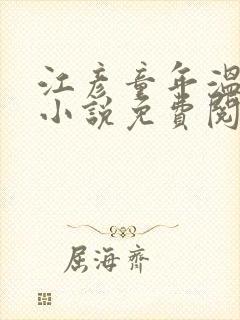 江彥童年溫
小說免費閱
屈海齊